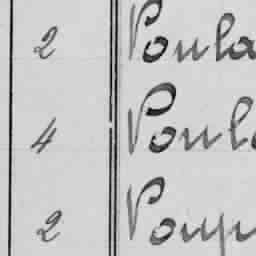 2 Poula
4 Poula
2 Poup